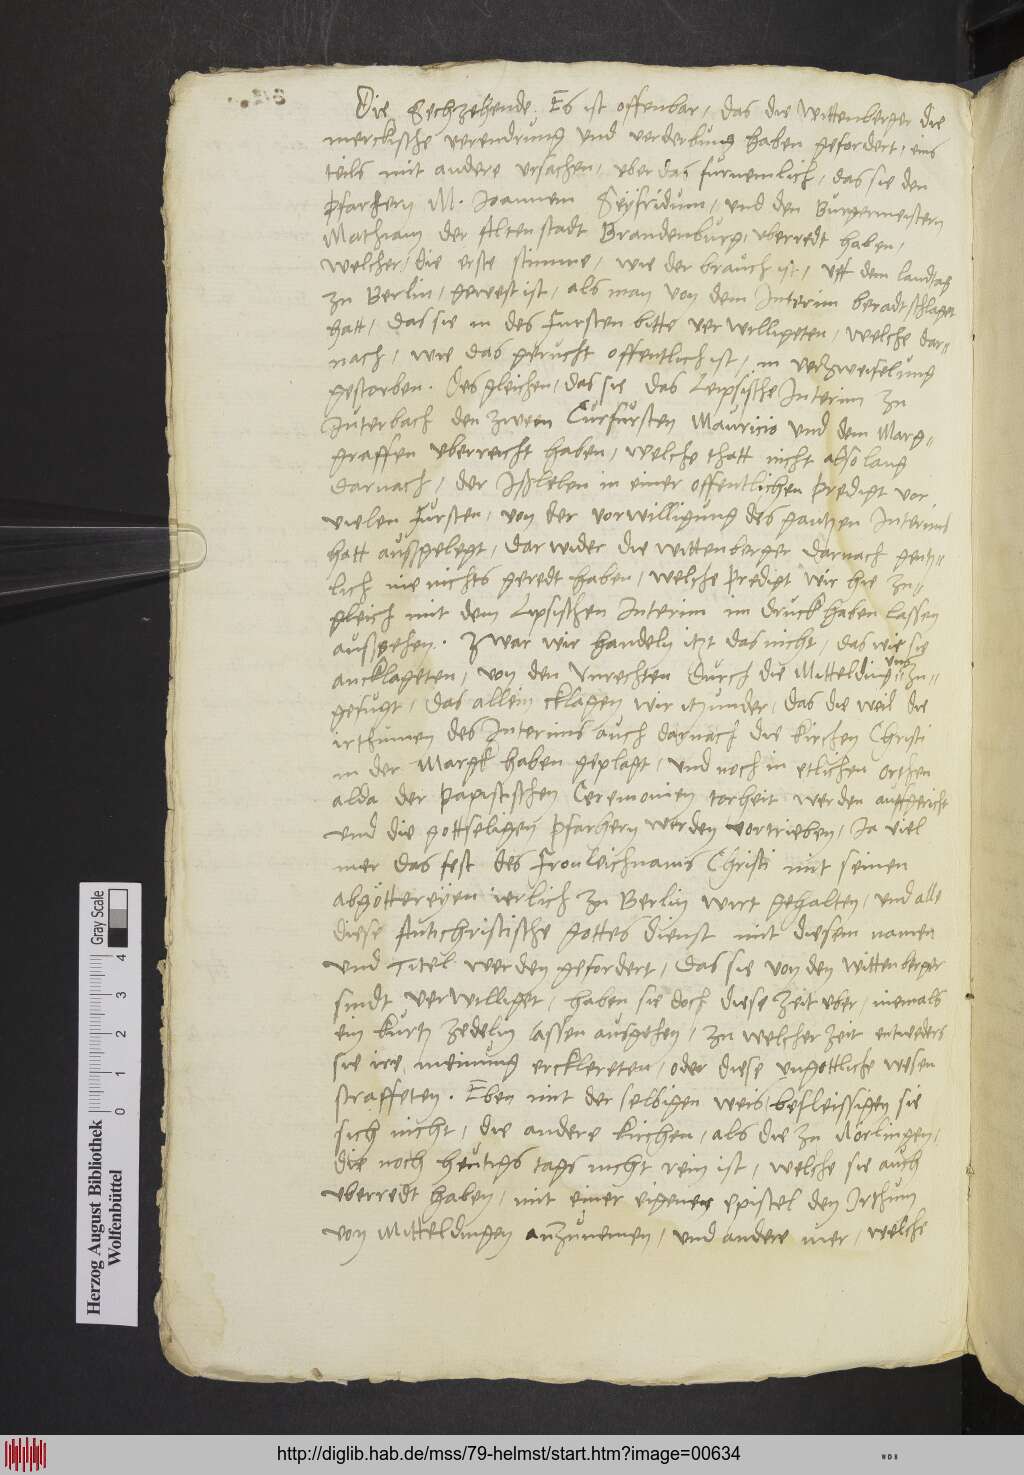 Die Sechzehende. Es ist offenbar, das die Wittenberger die
merckische verendrung und verderbung haben gefordert, eins
teils mit andere ursachen, uber das furnemlich, das sie den
Pfarhern M. Joannem Seyfridum, und den Burgermeistern
Mathiam der Altenstadt Brandenburg, uberredt haben,
welcher, die erste stimme, wie der brauch ist, uff dem landtag
zu Berlin, gewest ist, als man von dem Interim beradtschlaget
hatt, das sie in des Fursten bitte verwilligeten, welche dar-
nach, wie das gerucht offentlich ist, in verzweifelung
gestorben. Desgleichen, das sie das Leipsische Interim zu
Juterbach den zween Curfursten Mauricio und dem Marg-
graffen uberreicht haben, welche thatt nicht also lang
darnach, der Jssleben in einer offentlichen predigt vor
vielen Fursten, von der vorwilligung des gantzen Interims
hatt aussgelegt, darwider die wittenberger darnach gentz-
lich nie nichts geredt haben, welche predigt wir hie zu-
gleich mit dem Lipsischen Interim im druck haben lassen
aussgehen. Zwar wir handeln itzt das nicht, das wir sie
ancklageten, von den Unrechten durch die Mitteldinge uns zu-
gefugt, das allein cklagen wir itzunder, das die weil die
irthumen des Interims auch darnach die kirchen Christi
in der Margk haben geplagt, und noch in etlichen orthen
alda der papistischen Ceremonien torheit werden auffgericht
und die gottseligen Pfarhern werden vortrieben, Ja viel
mer das fest des Fronleichnams Christi mit seinen
abgöttereyen ierlich zu Berlin wirt gehalten, und alle
diese Antichristische gottes dienst mit diesem namen
und Titel werden gefordert, das sie von den Wittenberger
sindt verwilliget, haben sie doch diese zeit uber, niemals
ein kurtz zedelin lassen ausgehen, zu welcher zeit entweders
sie ire meinung ercklereten, oder diese ungottliche wesen
straffeten. Eben mit der selbigen weis befleissigen sie
sich nicht, die andere kirchen, als die zu Nörlingen,
die noch heutigs tags nicht rein ist, welche sie auch
uberredt haben, mit einer eigener epistel den Irthum
von Mitteldingen anzunemen, und andere mer, welche
Herzog August Bibliothek
Wolfenbüttel
0 1 2 3 4
Gray Scale
http://diglib.hab.de/mss/79-helmst/start.htm?image=00634